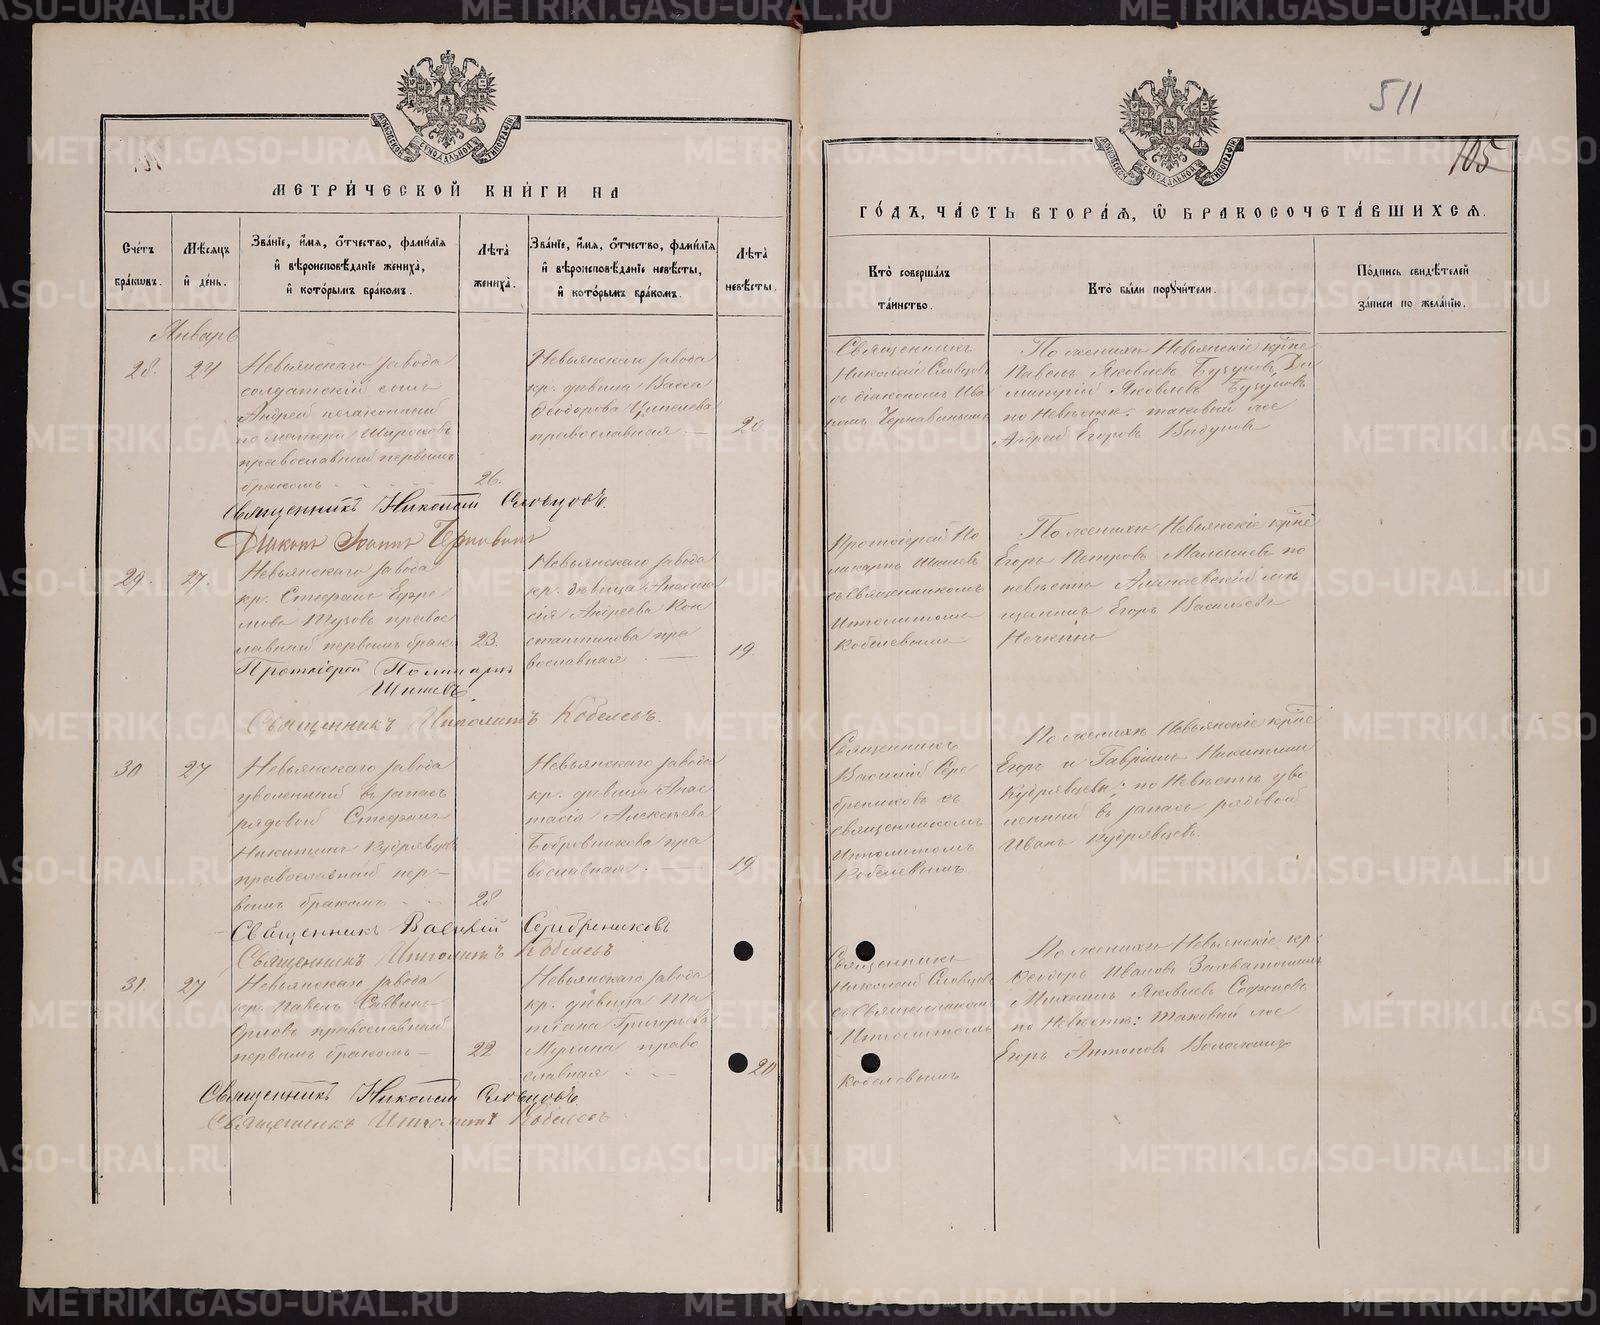 511
105
МЕТРИЧЕСКОЙ КНИГИ НА
ГОДЪ, ЧАСТЬ ВТОРАЯ, Ѿ БРАКОСОЧЕТАВШИХСЯ.
Счетъ браковъ.
Мѣсяцъ и день.
Званіе, имя, отчество, фамилія
и вѣроисповѣданіе жениха,
и которымъ бракомъ.
Лѣта жениха.
Званіе, имя, отчество, фамилія
и вѣроисповѣданіе невѣсты,
и которымъ бракомъ.
Лѣта невѣсты.
Кто совершалъ
таинство.
Кто были поручители.
Подпись свидѣтелей
записи по желанію.
Январь
28.
24
Невьянскаго завода
солдатскій сынъ
Андрей незаконный
по матери Широковъ
православный первымъ
бракомъ
26.
Невьянскаго завода
кр. дѣвица Васса
Ѳеодорова
православная
20
Священникъ
Николай Словцовъ
съ діакономъ Ива
номъ Чернавинымъ
По женихѣ Невьянскіе кр
Павелъ Яковлевъ Ди
митрій Яковлевъ
по невѣстѣ: таковый же
Андрей Егоровъ
Священникъ Николай Словцовъ.
Діаконъ Іоаннъ Чернавинъ
29.
27.
Невьянскаго завода
кр. Стефанъ Ефре
мовъ православ
лавный первымъ брак.
23.
Невьянскаго завода
кр. дѣвица Анаста
сія Андреева Кон
стантинова пра
вославная
19
Протоіерей По
ликарпъ Шишевъ
съ Священникомъ
Ипполитомъ
Кобелевымъ
По женихѣ Невьянскіе кр
Егоръ Петровъ Малышевъ по
невѣстѣ Алапаевскій мѣ
щанинъ Егоръ Васильевъ
Нечкинъ
Протоіерей Поликарпъ
Шишевъ.
Священникъ Ипполитъ Кобелевъ.
30
27
Невьянскаго завода
уволенный въ запасъ
рядовой Стефанъ
Никитинъ Кудрявцевъ
православный пер-
вымъ бракомъ
28
Невьянскаго завода
кр. дѣвица Анас
тасія Алексѣева
Бобровникова пра
вославная
19
Священникъ
Василій Сере
брениковъ съ
священникомъ
Ипполитомъ
Кобелевымъ
По женихѣ Невьянскіе кр
Егоръ и Гавріилъ Никитины
Кудрявцевы; по невѣстѣ уво
ленный въ запасъ рядовой
Иванъ Кудрявцевъ.
Священникъ Василій Серебрениковъ
Священникъ Ипполитъ Кобелевъ
31.
27
Невьянскаго завода
кр. Павелъ Саввинъ
Орловъ православный
первымъ бракомъ
22
Невьянскаго завода
кр. дѣвица Та
тіана Григорьева
Мухина право
славная
20
Священникъ
Николай Словцовъ
съ Священникомъ
Ипполитомъ
Кобелевымъ
По женихѣ Невьянскіе кр.
Ѳеодоръ Ивановъ
Михаилъ Яковлевъ Софоновъ
по невѣстѣ: таковый же
Егоръ Антоновъ
Священникъ Николай Словцовъ.
Священникъ Ипполитъ Кобелевъ